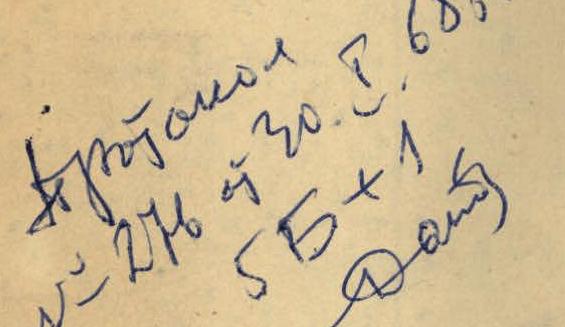 Протокол
№ 276 от 30.I.68г.
5Б+1